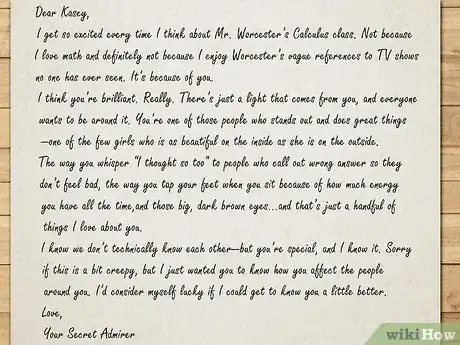 Dear Kasey,
I get so excited every time I think about Mr. Worcester's Calculus class. Not because
I love math and definitely not because I enjoy Worcester's vague references to TV shows
no one has ever seen. It's because of you.
I think you're brilliant. Really. There's just a light that comes from you, and everyone
wants to be around it. You're one of those people who stands out and does great things
—one of the few girls who is as beautiful on the inside as she is on the outside.
The way you whisper "I thought so too" to people who call out wrong answer so they
don't feel bad, the way you tap your feet when you sit because of how much energy
you have all the time,and those big, dark brown eyes...and that's just a handful of
things I love about you.
I know we don't technically know each other—but you're special, and I know it. Sorry
if this is a bit creepy, but I just wanted you to know how you affect the people
around you. I'd consider myself lucky if I could get to know you a little better.
Love,
Your Secret Admirer
wikiHow